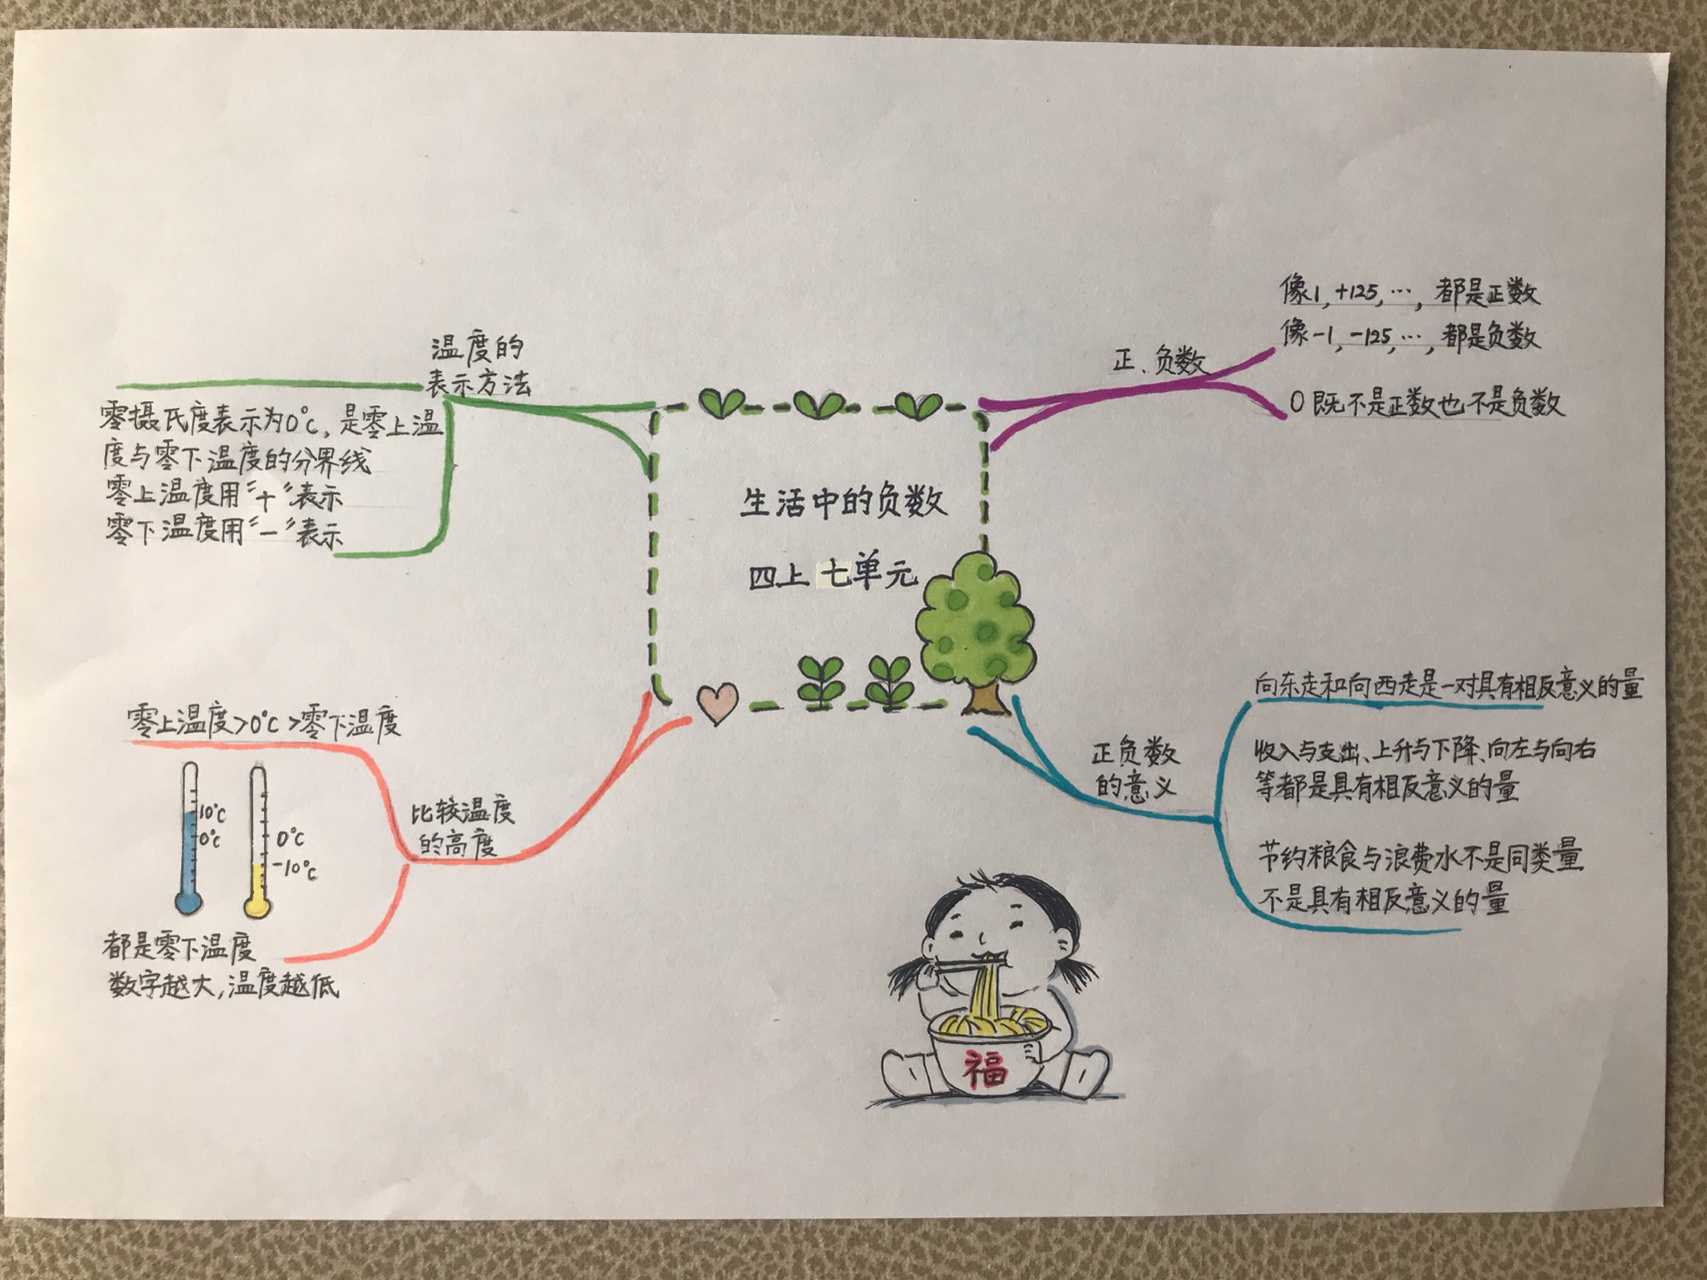 生活中的负数
四上七单元
温度的
表示方法
零摄氏度表示为0℃,是零上温
度与零下温度的分界线
零上温度用“+”表示
零下温度用“-”表示
正、负数
像1,+125,…,都是正数
像-1,-125,…,都是负数
0既不是正数也不是负数
比较温度
的高度
零上温度>0℃>零下温度
10℃
0℃
0℃
-10℃
都是零下温度
数字越大,温度越低
正负数
的意义
向东走和向西走是一对具有相反意义的量
收入与支出、上升与下降、向左与向右
等都是具有相反意义的量
节约粮食与浪费水不是同类量
不是具有相反意义的量
福